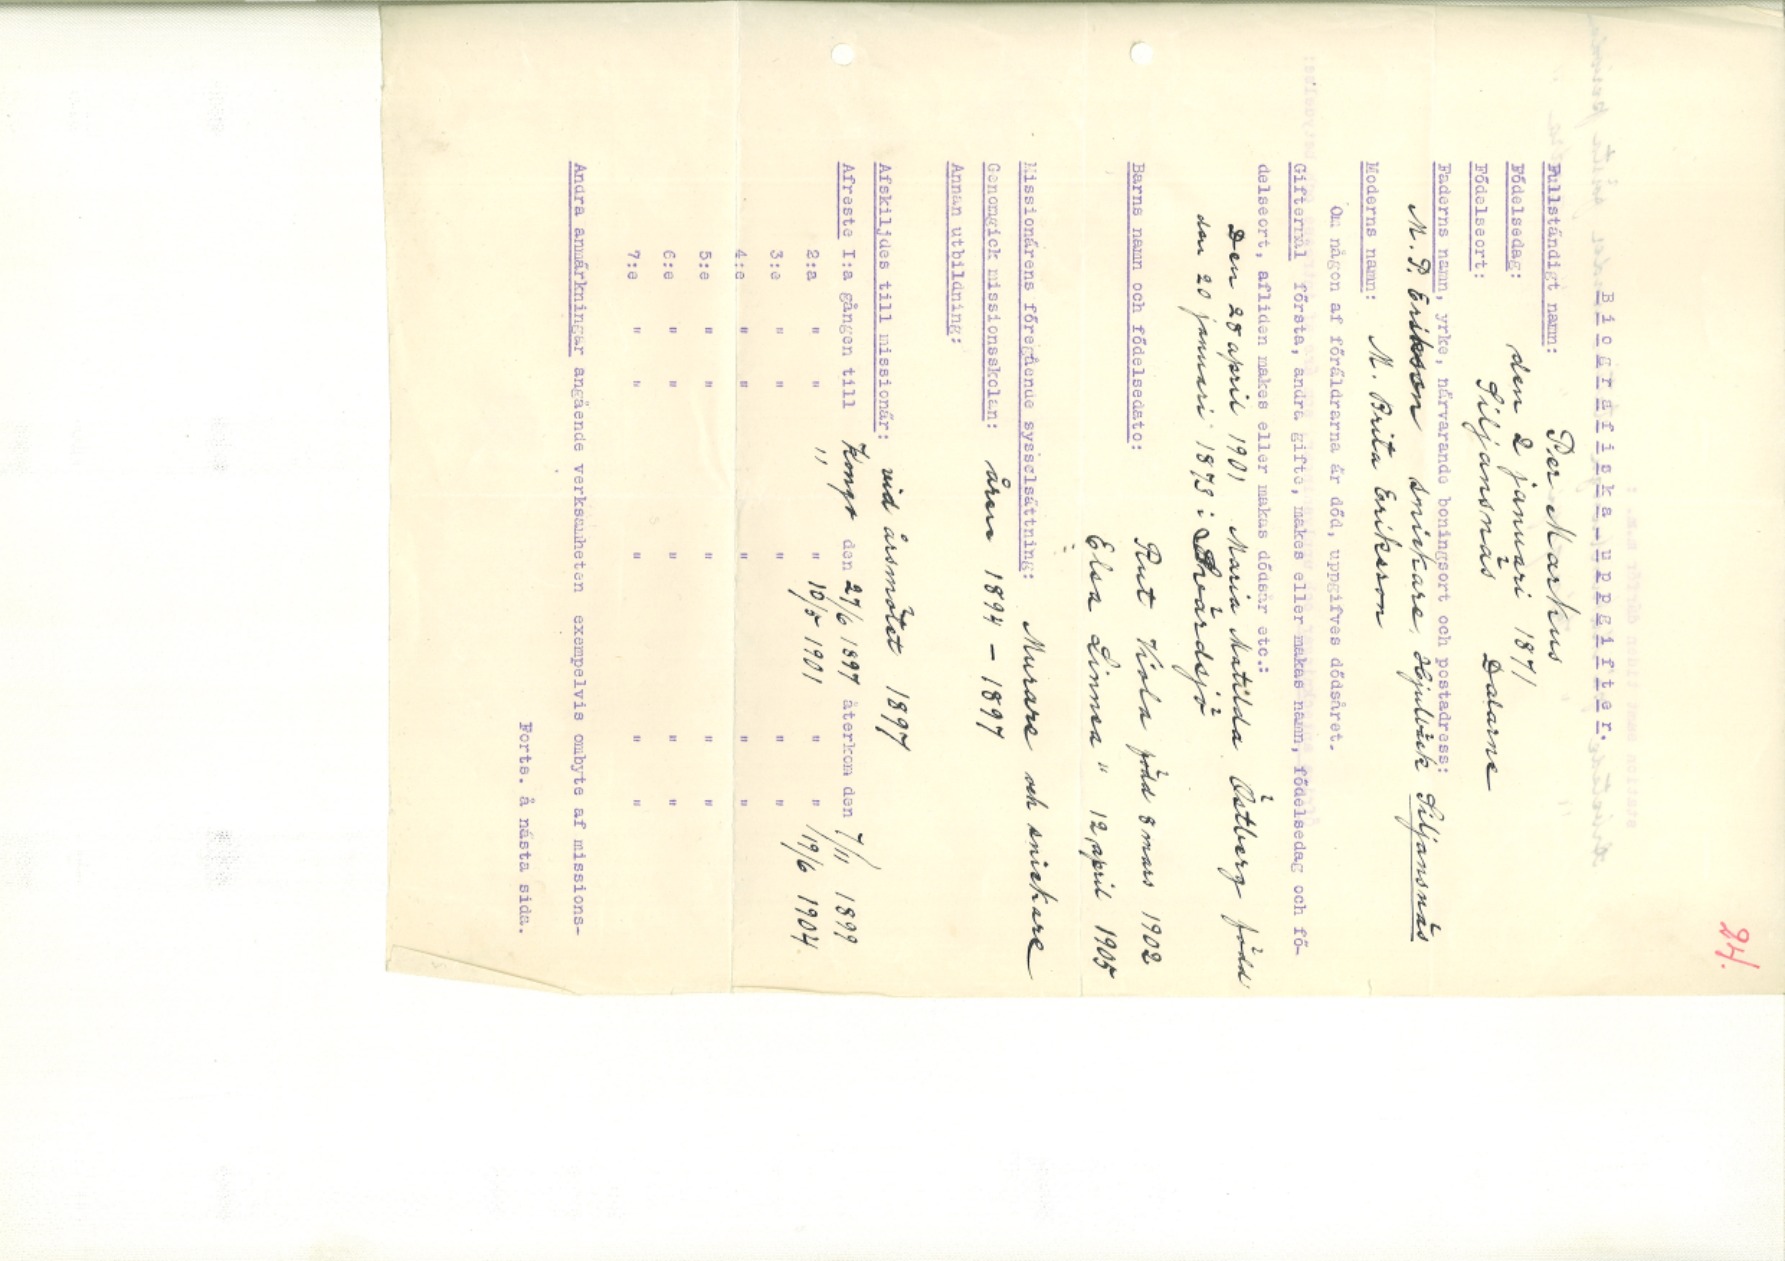 24.
Biografiska uppgifter.
Fullständigt namn: Per Markus
Födelsedag: den 2 januari 1871
Födelseort: Siljansnäs Dalarne
Faderns namn, yrke, närvarande boningsort och postadress:
M. P. Erikson snickare, Hjulbäck Siljansnäs
Moderns namn: M. Brita Erikson
Om någon af föräldrarna är död, uppgifves dödsåret.
Giftermål första, andra gifte, makes eller makas namn, födelsedag och fö-
delseort, afliden makes eller makas dödsår etc.:
Den 28 april 1901 Maria Matilda Östberg född
den 20 januari 1873 i Svärdsjö
Barns namn och födelsedato: Rut Viola född 8 mars 1902
Elsa Linnea " 12 april 1905
Missionärens föregående sysselsättning: Murare och snickare
Genomgick missionsskolan: åren 1894 - 1897
Annan utbildning:
Afskiljdes till missionär: vid årsmötet 1897
Afreste I:a gången till Kongo den 27/6 1897 återkom den 7/11 1899
2:a " " " " 10/5 1901 " " 19/6 1904
3:e " " " " "
4:e " " " " "
5:e " " " " "
6:e " " " " "
7:e " " " " "
Andra anmärkningar angående verksamheten exempelvis ombyte af missions-
Forts. å nästa sida.